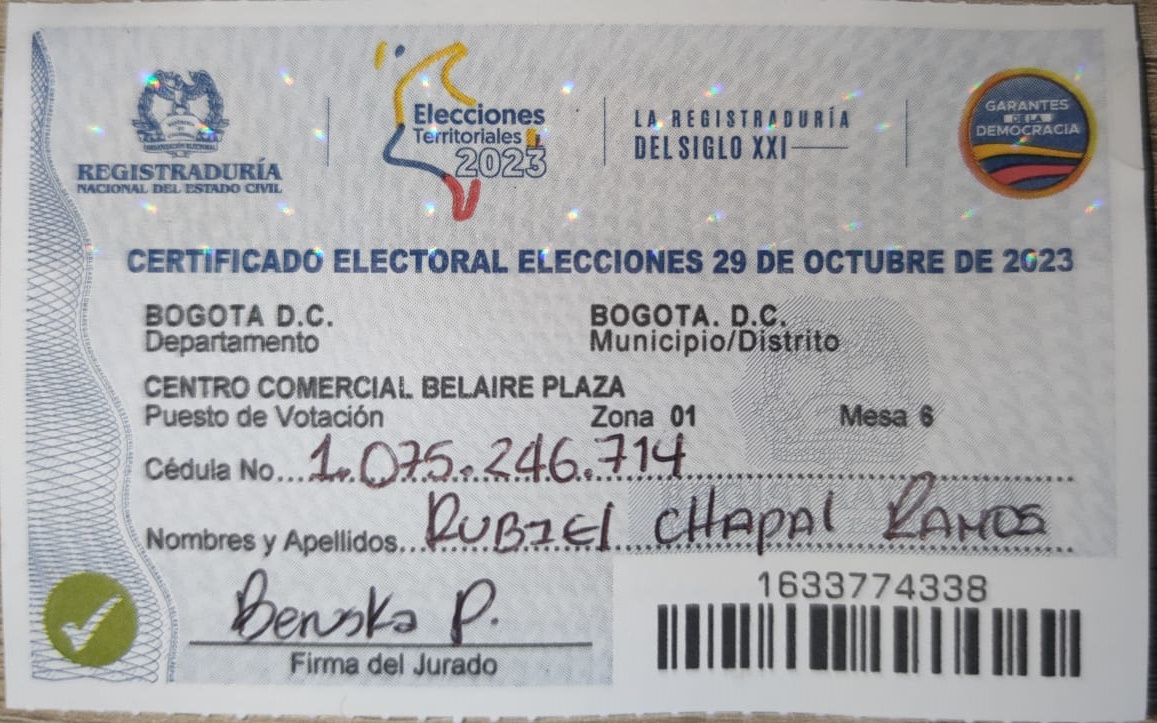 REGISTRADURÍA
NACIONAL DEL ESTADO CIVIL
Elecciones
Territoriales
2023
LA REGISTRADURÍA
DEL SIGLO XXI
GARANTES
DE LA
DEMOCRACIA
CERTIFICADO ELECTORAL ELECCIONES 29 DE OCTUBRE DE 2023
BOGOTA D.C. BOGOTA. D.C.
Departamento Municipio/Distrito
CENTRO COMERCIAL BELAIRE PLAZA
Puesto de Votación Zona 01 Mesa 6
Cédula No... 1.075.246.714
Nombres y Apellidos... RUBIEl CHapal RAMOS
P.
Firma del Jurado
1633774338